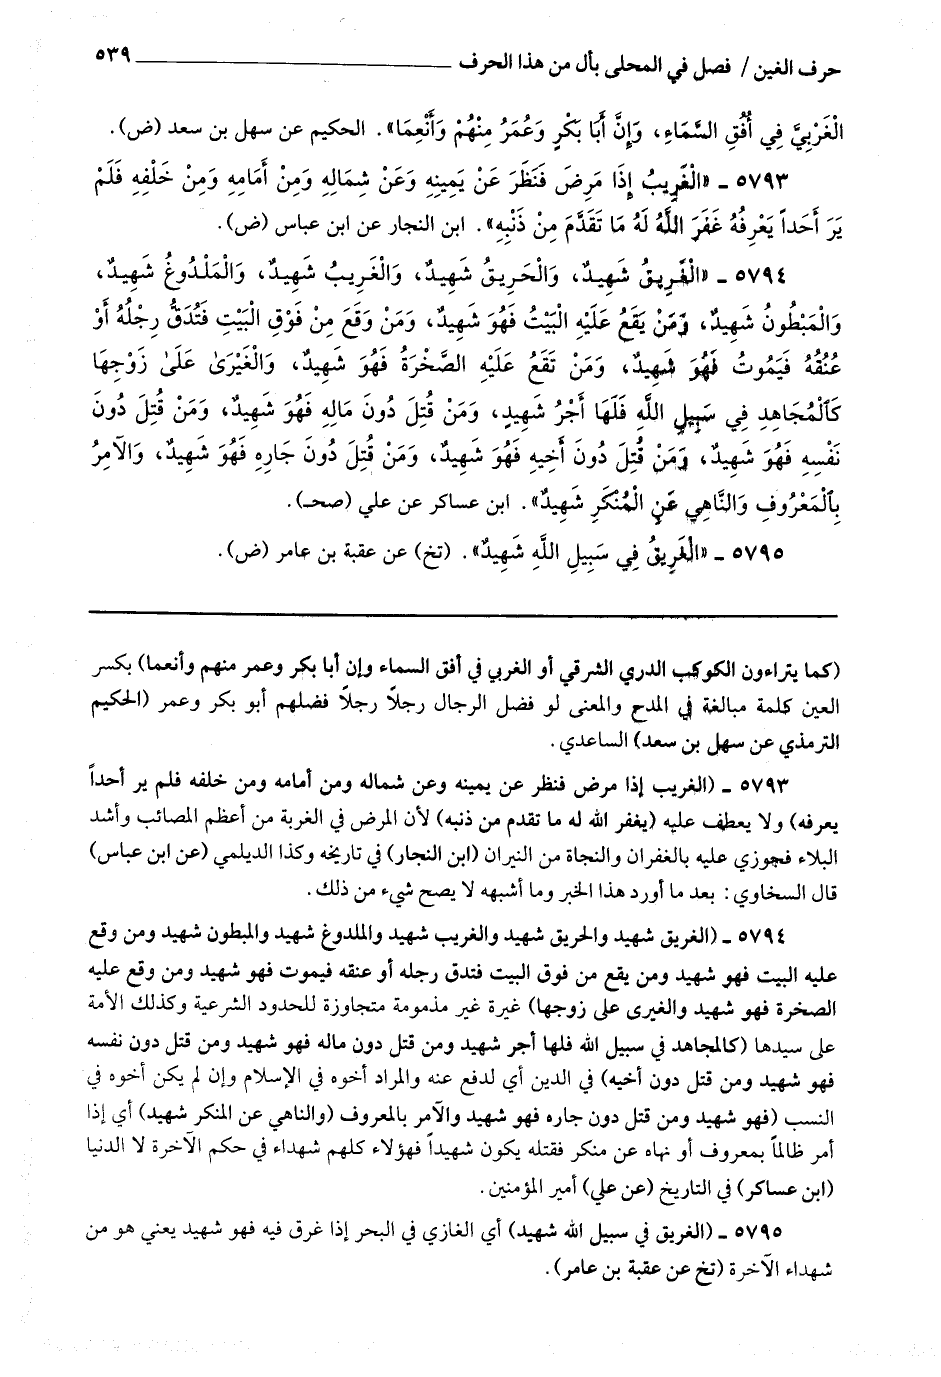 حرف الغين / فصل في المحلى بأل من هذا الحرف ــــــــــــــــ ٥٣٩
الْغَرْبِيَّ فِي أُفُقِ السَّمَاءِ، وَإِنَّ أَبَا بَكْرٍ وَعُمَرَ مِنْهُمْ وَأَنْعِمَا». الحكيم عن سهل بن سعد (ض).
٥٧٩٣ ـ «الْغَرِيبُ إِذَا مَرِضَ فَنَظَرَ عَنْ يَمِينِهِ وَعَنْ شِمَالِهِ وَمِنْ أَمَامِهِ وَمِنْ خَلْفِهِ فَلَمْ
يَرَ أَحَداً يَعْرِفُهُ غَفَرَ اللَّهُ لَهُ مَا تَقَدَّمَ مِنْ ذَنْبِهِ». ابن النجار عن ابن عباس (ض).
٥٧٩٤ ـ «الْغَرِيقُ شَهِيدٌ، وَالْحَرِيقُ شَهِيدٌ، وَالْغَرِيبُ شَهِيدٌ، وَالْمَلْدُوغُ شَهِيدٌ،
وَالْمَبْطُونُ شَهِيدٌ، وَمَنْ يَقَعُ عَلَيْهِ الْبَيْتُ فَهُوَ شَهِيدٌ، وَمَنْ وَقَعَ مِنْ فَوْقِ الْبَيْتِ فَتُدَقُّ رِجْلُهُ أَوْ
عُنُقُهُ فَيَمُوتُ فَهُوَ شَهِيدٌ، وَمَنْ تَقَعُ عَلَيْهِ الصَّخْرَةُ فَهُوَ شَهِيدٌ، وَالْغَيْرَىٰ عَلَىٰ زَوْجِهَا
كَالْمُجَاهِدِ فِي سَبِيلِ اللَّهِ فَلَهَا أَجْرُ شَهِيدٍ، وَمَنْ قُتِلَ دُونَ مَالِهِ فَهُوَ شَهِيدٌ، وَمَنْ قُتِلَ دُونَ
نَفْسِهِ فَهُوَ شَهِيدٌ، وَمَنْ قُتِلَ دُونَ أَخِيهِ فَهُوَ شَهِيدٌ، وَمَنْ قُتِلَ دُونَ جَارِهِ فَهُوَ شَهِيدٌ، وَالآمِرُ
بِالْمَعْرُوفِ وَالنَّاهِي عَنِ الْمُنْكَرِ شَهِيدٌ». ابن عساكر عن علي (صحـ).
٥٧٩٥ ـ «الْغَرِيقُ فِي سَبِيلِ اللَّهِ شَهِيدٌ». (تخ) عن عقبة بن عامر (ض).
(كما يتراءون الكوكب الدري الشرقي أو الغربي في أفق السماء وإن أبا بكر وعمر منهم وأنعما) بكسر
العين كلمة مبالغة في المدح والمعنى لو فضل الرجال رجلاً رجلاً فضلهم أبو بكر وعمر (الحكيم
الترمذي عن سهل بن سعد) الساعدي.
٥٧٩٣ ـ (الغريب إذا مرض فنظر عن يمينه وعن شماله ومن أمامه ومن خلفه فلم ير أحداً
يعرفه) ولا يعطف عليه (يغفر الله له ما تقدم من ذنبه) لأن المرض في الغربة من أعظم المصائب وأشد
البلاء فجوزي عليه بالغفران والنجاة من النيران (ابن النجار) في تاريخه وكذا الديلمي (عن ابن عباس)
قال السخاوي: بعد ما أورد هذا الخبر وما أشبهه لا يصح شيء من ذلك.
٥٧٩٤ ـ (الغريق شهيد والحريق شهيد والغريب شهيد والملدوغ شهيد والمبطون شهيد ومن وقع
عليه البيت فهو شهيد ومن يقع من فوق البيت فتدق رجله أو عنقه فيموت فهو شهيد ومن وقع عليه
الصخرة فهو شهيد والغيرى على زوجها) غيرة غير مذمومة متجاوزة للحدود الشرعية وكذلك الأمة
على سيدها (كالمجاهد في سبيل الله فلها أجر شهيد ومن قتل دون ماله فهو شهيد ومن قتل دون نفسه
فهو شهيد ومن قتل دون أخيه) في الدين أي لدفع عنه والمراد أخوه في الإسلام وإن لم يكن أخوه في
النسب (فهو شهيد ومن قتل دون جاره فهو شهيد والآمر بالمعروف (والناهي عن المنكر شهيد) أي إذا
أمر ظالماً بمعروف أو نهاه عن منكر فقتله يكون شهيداً فهؤلاء كلهم شهداء في حكم الآخرة لا الدنيا
(ابن عساكر) في التاريخ (عن علي) أمير المؤمنين.
٥٧٩٥ ـ (الغريق في سبيل الله شهيد) أي الغازي في البحر إذا غرق فيه فهو شهيد يعني هو من
شهداء الآخرة (تخ عن عقبة بن عامر).